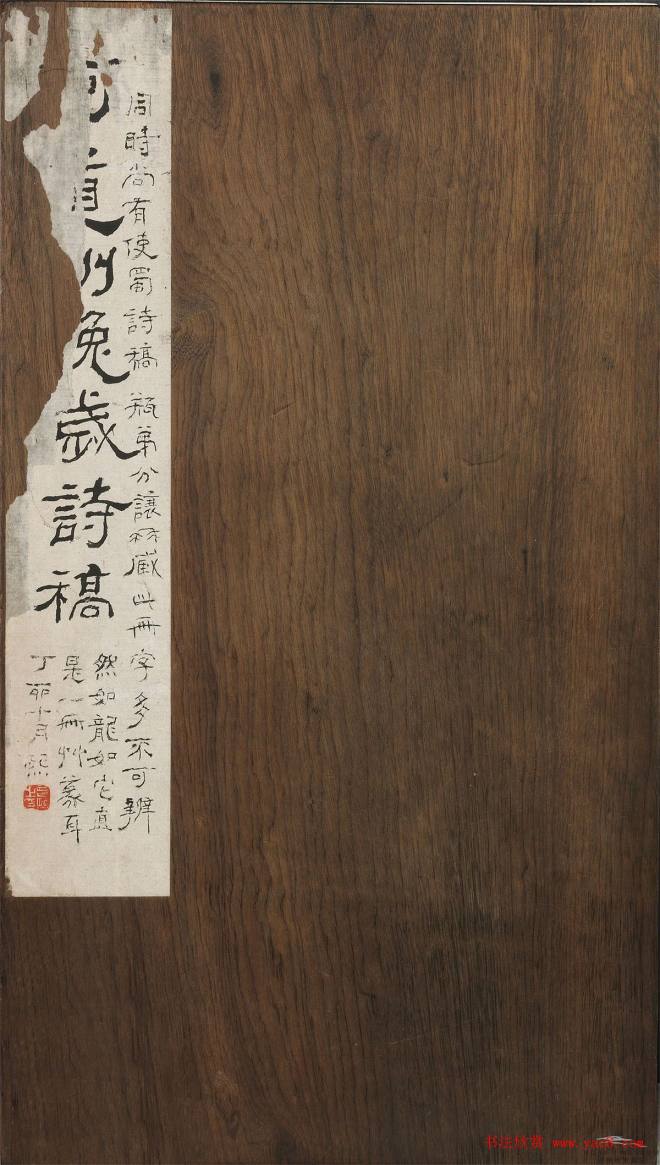 何道州兔歲詩稿
同時尚有使蜀詩稿瓶弟分讓藏此冊字多不可辨
然如龍如它直
是一冊艸篆耳
丁卯十月熙
书法欣赏 www.yac8.com